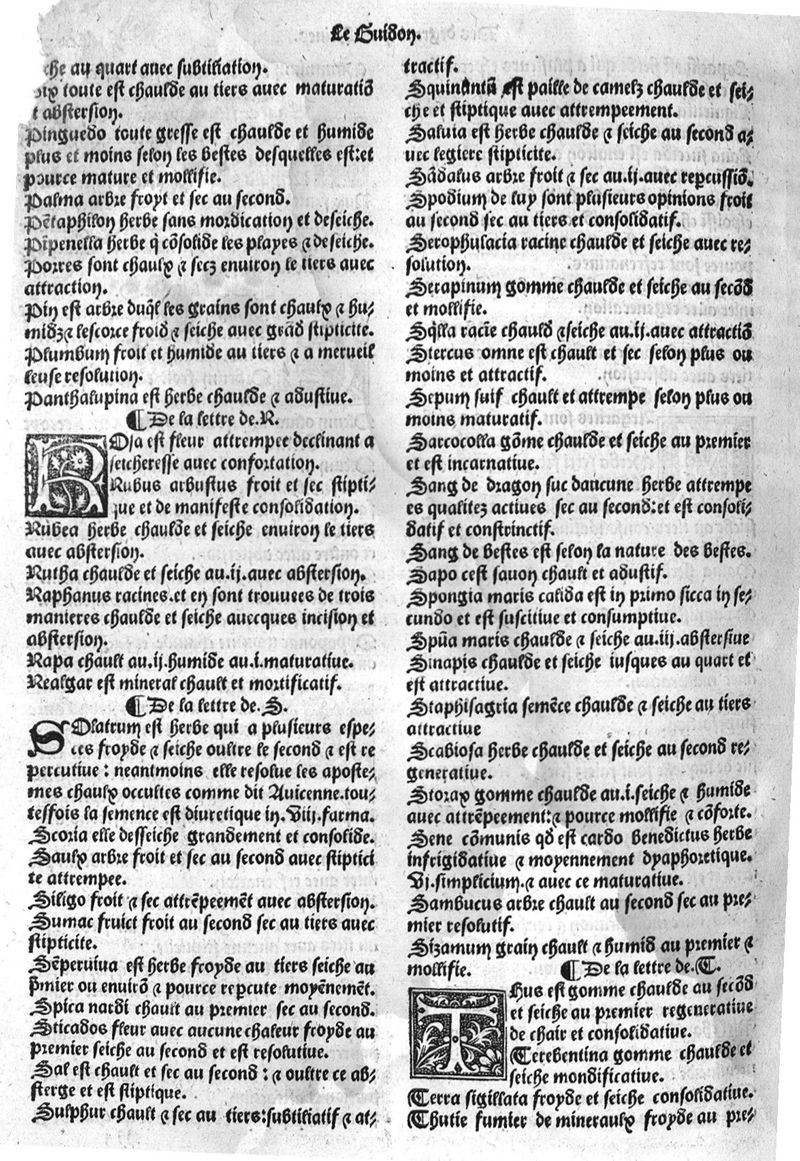 Le Guidon.
che au quart avec subtiliation.
toute est chaulde au tiers avec maturatiõ
et abstersion.
Pinguedo toute gresse est chaulde et humide
plus et moins selon les bestes desquelles est:et
pource mature et mollifie.
Palma arbre froyt et sec au second.
Pẽtaphilon herbe sans mordication et deseiche.
Pĩpenella herbe q̃ cõsolide les playes ⁊ deseiche.
Porres sont chaulx ⁊ secz environ le tiers avec
attraction.
Pin est arbre duq̃l les grains sont chaulx ⁊ hu⸗
midz⁊ lescorce froid ⁊ seiche avec grãd stipticite.
Plumbum froit et humide au tiers ⁊ a merueil
leuse resolution.
Panthalupina est herbe chaulde ⁊ adustiue.
¶ De la lettre de.R.
ROsa est fleur attrempee declinant a
seicheresse auec confortation.
Rubus arbustus froit et sec stipti⸗
que et de manifeste consolidation.
Rubea herbe chaulde et seiche enuiron le tiers
auec abstersion.
Rutha chaulde et seiche au.ij.auec abstersion.
Raphanus racines.et en sont trouuees de trois
manieres chaulde et seiche auecques incision et
abstersion.
Rapa chault au.ij.humide au.i.maturatiue.
Realgar est mineral chault et mortificatif.
¶ De la lettre de.S.
SOlatrum est herbe qui a plusieurs espe⸗
ces froyde ⁊ seiche oultre le second ⁊ est re
percutiue : neantmoins elle resolue les aposte⸗
mes chaulx occultes comme dit Auicenne.tou⸗
tesfois la semence est diuretique in.Viij.farma.
Scoria elle desseiche grandement et consolide.
Saulx arbre froit et sec au second auec stiptici
te attrempee.
Siligo froit ⁊ sec attrẽpeemẽt auec abstersion.
Sumac fruict froit au second sec au tiers auec
stipticite.
Sẽperuiua est herbe froyde au tiers seiche au
p̃mier ou enuirõ ⁊ pource repcute moyẽnemẽt.
Spica nardi chault au premier sec au second.
Sticados fleur auec aucune chaleur froyde au
premier seiche au second et est resolutiue.
Sal est chault et sec au second : ⁊ oultre ce ab⸗
sterge et est stiptique.
Sulphur chault ⁊ sec au tiers:subtiliatif ⁊ at⸗
tractif.
Squinantũ est paille de camelz chaulde et sei⸗
che et stiptique auec attrempeement.
Saluia est herbe chaulde ⁊ seiche au second a⸗
uec legiere stipticite.
Sãdalus arbre froit ⁊ sec au.ij.auec repcussiõ.
Spodium de luy sont plusieurs opinions froit
au second sec au tiers et consolidatif.
Serophulacia racine chaulde et seiche auec re⸗
solution.
Serapinum gomme chaulde et seiche au secõd
et mollifie.
Sq̃lla raciẽ chauld ⁊seiche au.ij.auec attractiõ
Stercus omne est chault et sec selon plus ou
moins et attractif.
Sepum suif chault et attrempe selon plus ou
moins maturatif.
Sarcocolla gõme chaulde et seiche au premier
et est incarnatiue.
Sang de dragon suc daucune herbe attrempe
es qualitez actiues sec au second:et est consoli⸗
datif et constrinctif.
Sang de bestes est selon la nature des bestes.
Sapo cest sauon chault et adustif.
Spongia maris calida est in primo sicca in se⸗
cundo et est suscitiue et consumptiue.
Spũa maris chaulde ⁊ seiche au.iij.abstersiue
Sinapis chaulde et seiche iusques au quart et
est attractiue.
Staphisagria semẽce chaulde ⁊ seiche au tiers
attractiue
Scabiosa herbe chaulde et seiche au second re⸗
generatiue.
Storax gomme chaulde au.i.seiche ⁊ humide
auec attrẽpeement:⁊ pource mollifie ⁊ cõforte.
Sene cõmunis qd̃ est cardo benedictus herbe
infrigidatiue ⁊ moyennement dyaphoretique.
Vj.simplicium.⁊ auec ce maturatiue.
Sambucus arbre chault au second sec au pre⸗
mier resolutif.
Sizamum grain chault ⁊ humid au premier ⁊
mollifie. ¶ De la lettre de.T.
THus est gomme chaulde au secõd
et seiche au premier regeneratiue
de chair et consolidatiue.
Terebentina gomme chaulde et
seiche mondificatiue.
Terra sigillata froyde et seiche consolidatiue.
Thutie fumier de mineraulx froyde au pre⸗